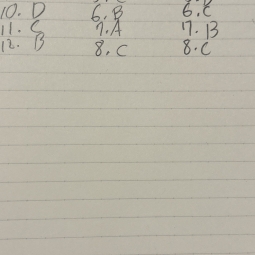 10. D 6. B 6. C
11. C 7. A 7. B
12. B 8. C 8. C